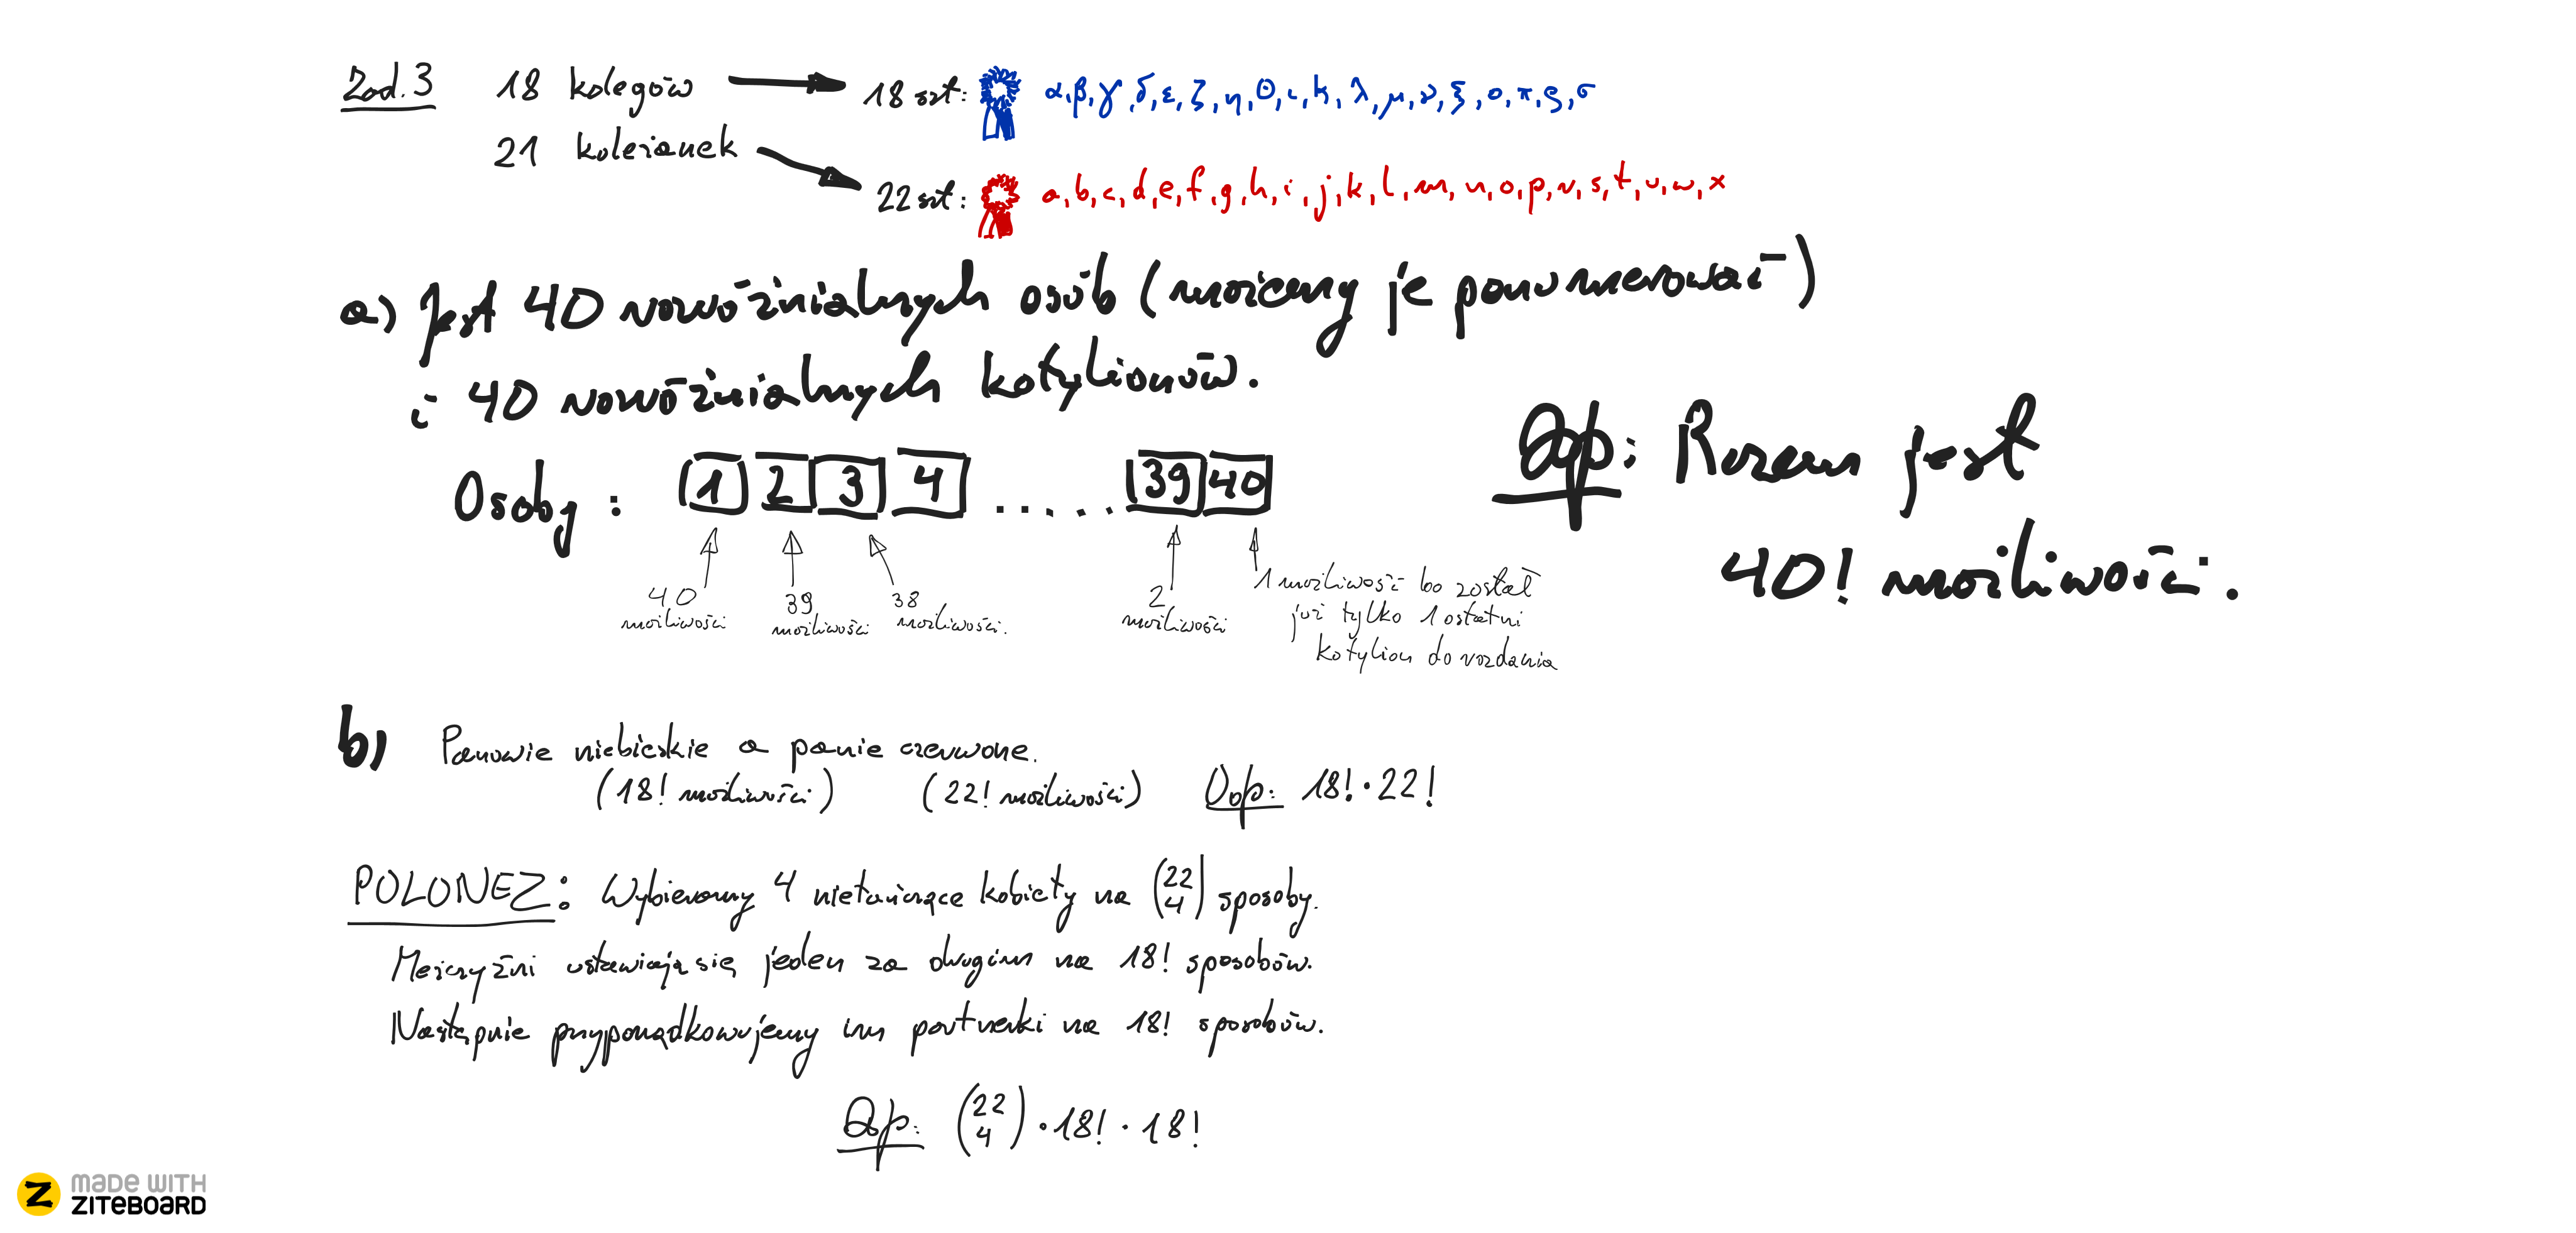 Zad. 3 18 kolegów 18 szt: α, β, γ, δ, ε, ζ, η, Θ, ι, k, λ, μ, ν, ξ, o, π, ρ, σ
21 koleżanek
22 szt: a, b, c, d, e, f, g, h, i, j, k, l, m, n, o, p, r, s, t, u, w, x
a) Jest 40 rozróżnialnych osób (możemy je ponumerować)
i 40 rozróżnialnych kotylionów.
Osoby: 1 2 3 4 ..... 39 40
40 możliwości
39 możliwości
38 możliwości.
2 możliwości
1 możliwość bo został
już tylko 1 ostatni
kotylion do rozdania
Odp: Razem jest
40! możliwości.
b) Panowie niebieskie a panie czerwone.
(18! możliwości) (22! możliwości) Odp: 18! · 22!
POLONEZ: Wybieramy 4 nietańczące kobiety na (22 4) sposoby.
Mężczyźni ustawiają się jeden za drugim na 18! sposobów.
Następnie przyporządkowujemy im partnerki na 18! sposobów.
Odp: (22 4) · 18! · 18!
MADE WITH
ZITEBOARD